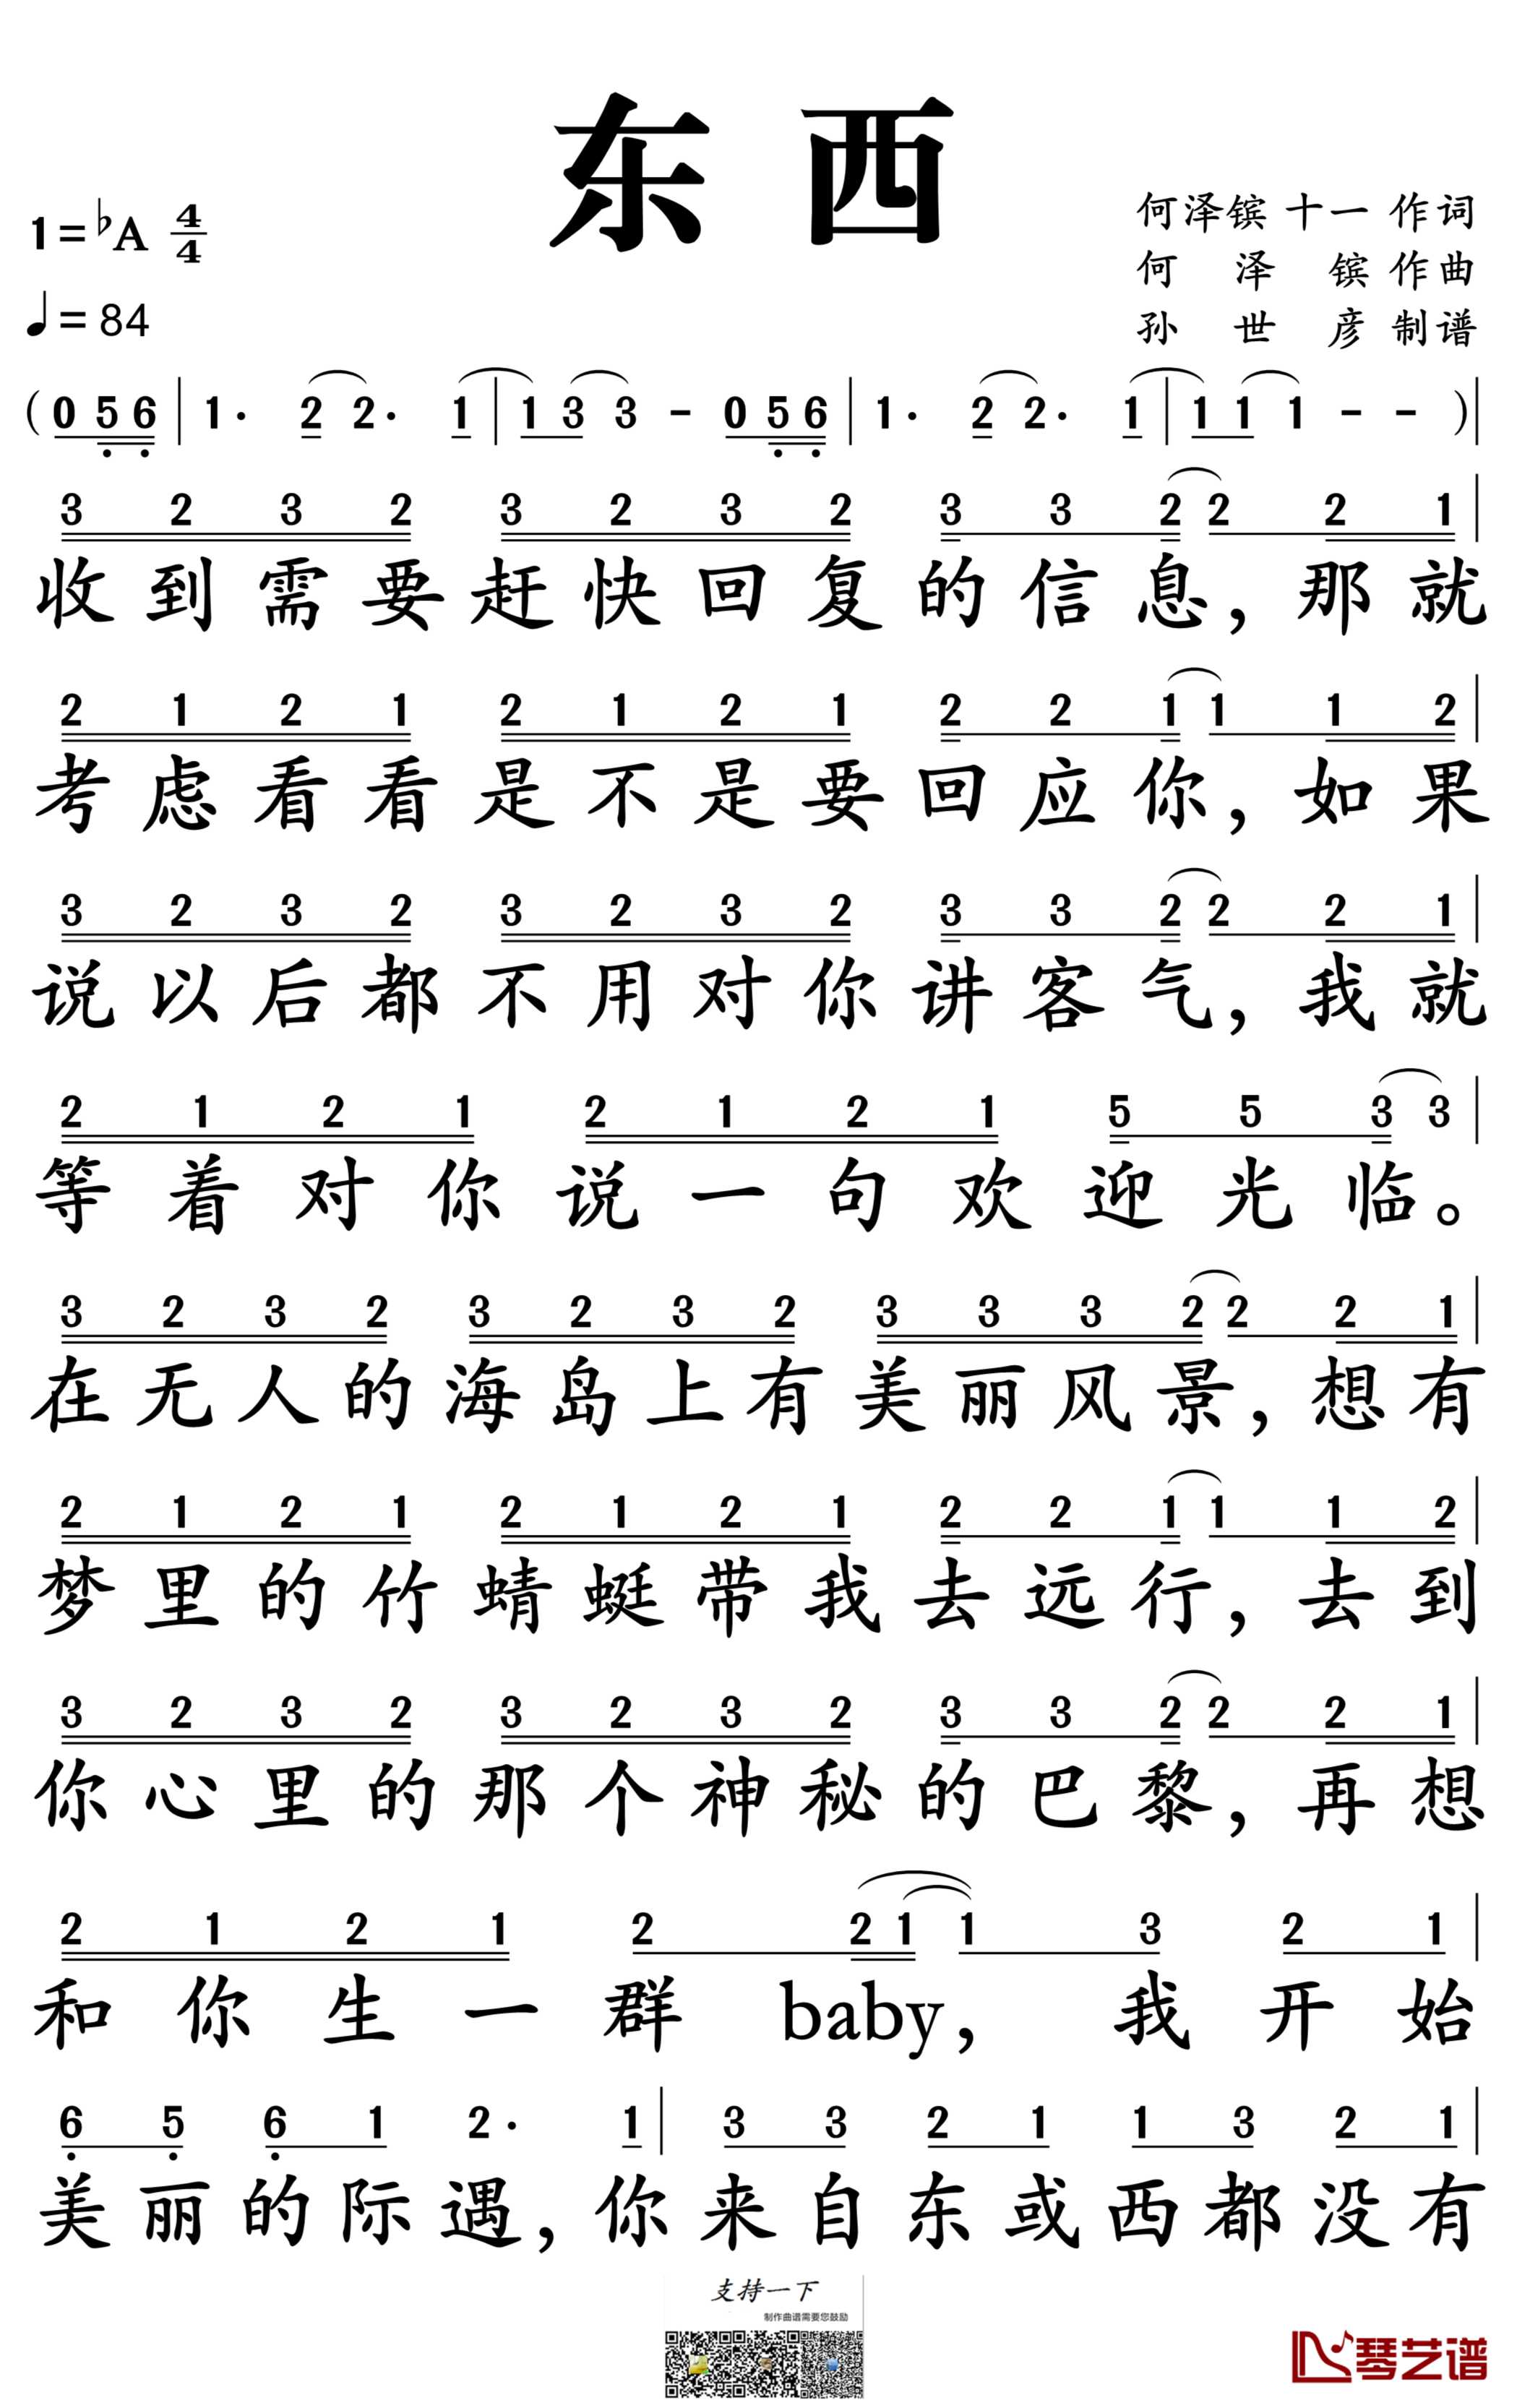 东西
1=♭A 4/4
何泽镔 十一 作词
何泽镔 作曲
♩=84
孙世彦 制谱
(0 5̣ 6̣ | 1· 2 2· 1 | 1 3 3 - 0 5̣ 6̣ | 1· 2 2· 1 | 1 1 1 - - )|
3 2 3 2 3 2 3 2 3 3 2 2 2 1 |
收到需要赶快回复的信息，那就
2 1 2 1 2 1 2 1 2 2 1 1 1 2 |
考虑看看是不是要回应你，如果
3 2 3 2 3 2 3 2 3 3 2 2 2 1 |
说以后都不用对你讲客气，我就
2 1 2 1 2 1 2 1 5 5 3 3 |
等着对你说一句欢迎光临。
3 2 3 2 3 2 3 2 3 3 3 2 2 2 1 |
在无人的海岛上有美丽风景，想有
2 1 2 1 2 1 2 1 2 2 1 1 1 2 |
梦里的竹蜻蜓带我去远行，去到
3 2 3 2 3 2 3 2 3 3 2 2 2 1 |
你心里的那个神秘的巴黎，再想
2 1 2 1 2 2 1 1 3 2 1 |
和你生一群baby，我开始
6̣ 5̣ 6̣ 1 2· 1 | 3 3 2 1 1 3 2 1 |
美丽的际遇，你来自东或西都没有
支持一下
制作曲谱需要您鼓励
琴艺谱